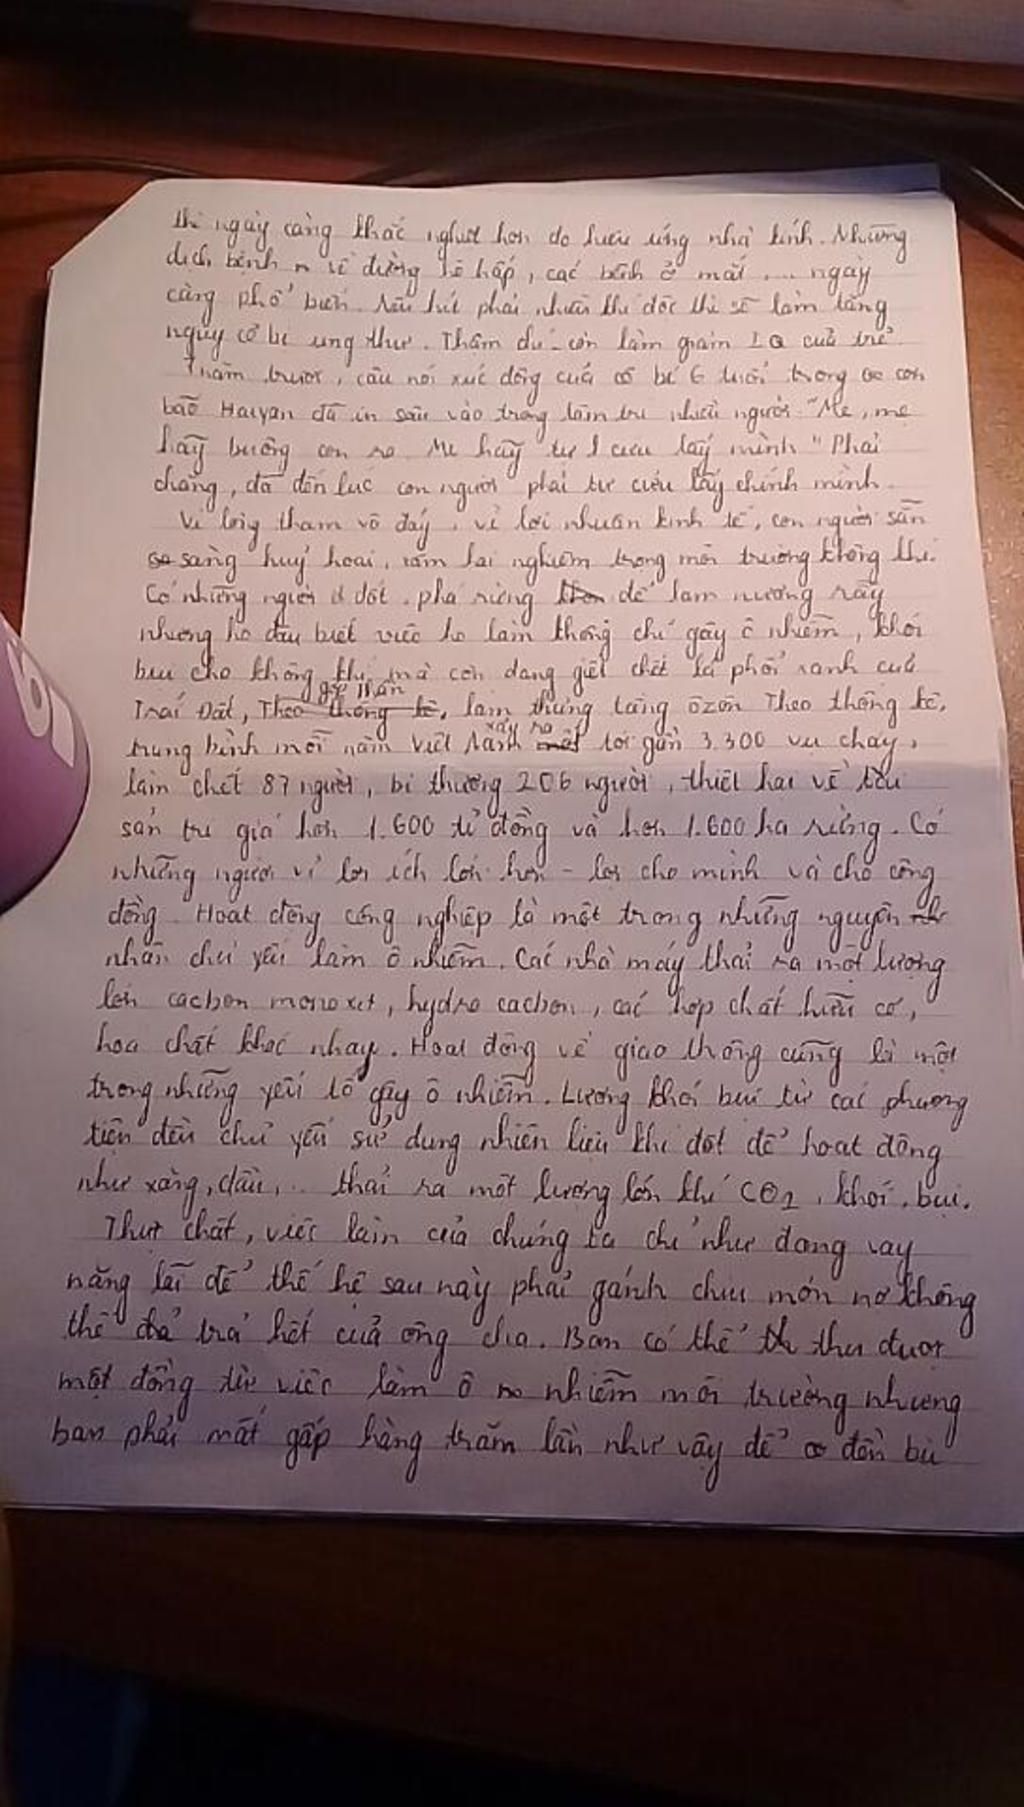 thì ngày càng khắc nghiệt hơn do hiệu ứng nhà kính. Những
dịch bệnh về đường hô hấp, các bệnh ở mắt .... ngày
càng phổ biến. Nếu hít phải nhiều khí độc thì sẽ làm tăng
nguy cơ bị ung thư. Thậm chí còn làm giảm IQ của trẻ.
1 năm trước, câu nói xúc động của cô bé 6 tuổi trong cơn
bão Haiyan đã in sâu vào trong tâm trí nhiều người "Mẹ, mẹ
hãy buông con ra. Mẹ hãy tự cứu lấy mình" Phải
chăng, đã đến lúc con người phải tự cứu lấy chính mình.
Vì lòng tham vô đáy, vì lợi nhuận kinh tế, con người sẵn
sàng huỷ hoại, xâm hại nghiêm trọng môi trường không khí.
Có những người đốt, phá rừng để làm nương rẫy
nhưng họ đâu biết việc họ làm không chỉ gây ô nhiễm, khói
bụi cho không khí mà còn đang giết chết lá phổi xanh của
Trái Đất, góp phần làm thủng tầng ôzôn Theo thống kê,
trung bình mỗi năm Việt Nam xảy ra tới gần 3.300 vụ cháy,
làm chết 87 người, bị thương 206 người, thiệt hại về tài
sản trị giá hơn 1.600 tỉ đồng và hơn 1.600 ha rừng. Có
những người vì lợi ích lớn hơn - lợi cho mình và cho cộng
đồng. Hoạt động công nghiệp là một trong những nguyên
nhân chủ yếu làm ô nhiễm. Các nhà máy thải ra một lượng
lớn cacbon monoxit, hydro cacbon, các hợp chất hữu cơ,
hoá chất khác nhay. Hoạt động về giao thông cũng là một
trong những yếu tố gây ô nhiễm. Lượng khói bụi từ các phương
tiện đều chủ yếu sử dụng nhiên liệu khí đốt để hoạt động
như xăng, dầu,... thải ra một lượng lớn khí CO2, khói, bụi.
Thực chất, việc làm của chúng ta chỉ như đang vay
nặng lãi để thế hệ sau này phải gánh chịu món nợ không
thể trả hết của ông cha. Bạn có thể thu được
một đồng từ việc làm ô nhiễm môi trường nhưng
bạn phải mất gấp hàng trăm lần như vậy để đền bù